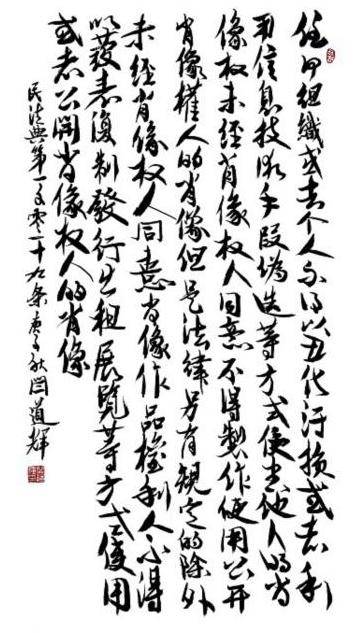 任何組織或者个人不得以丑化汙损或者利
用信息技術手段偽造等方式侵害他人的肖
像权未经肖像权人同意不得製作使用公开
肖像權人的肖像但是法律另有規定的除外
未经肖像权人同意肖像作品權利人不得
以發表復制發行出租展览等方式使用
或者公開肖像权人的肖像
民法典第一千零一十九条庚子秋閆道輝